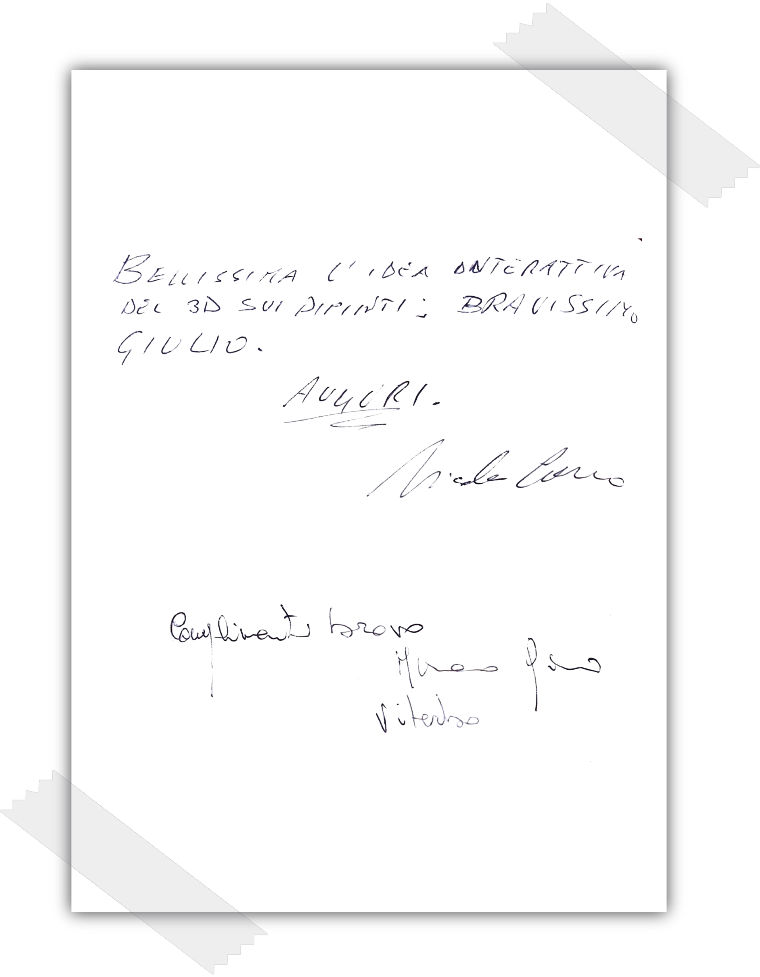 BELLISSIMA L'IDEA INTERATTIVA
DEL 3D SUI DIPINTI; BRAVISSIMO
GIULIO.
AUGURI.
Nicola
Complimenti bravo
Viterbo